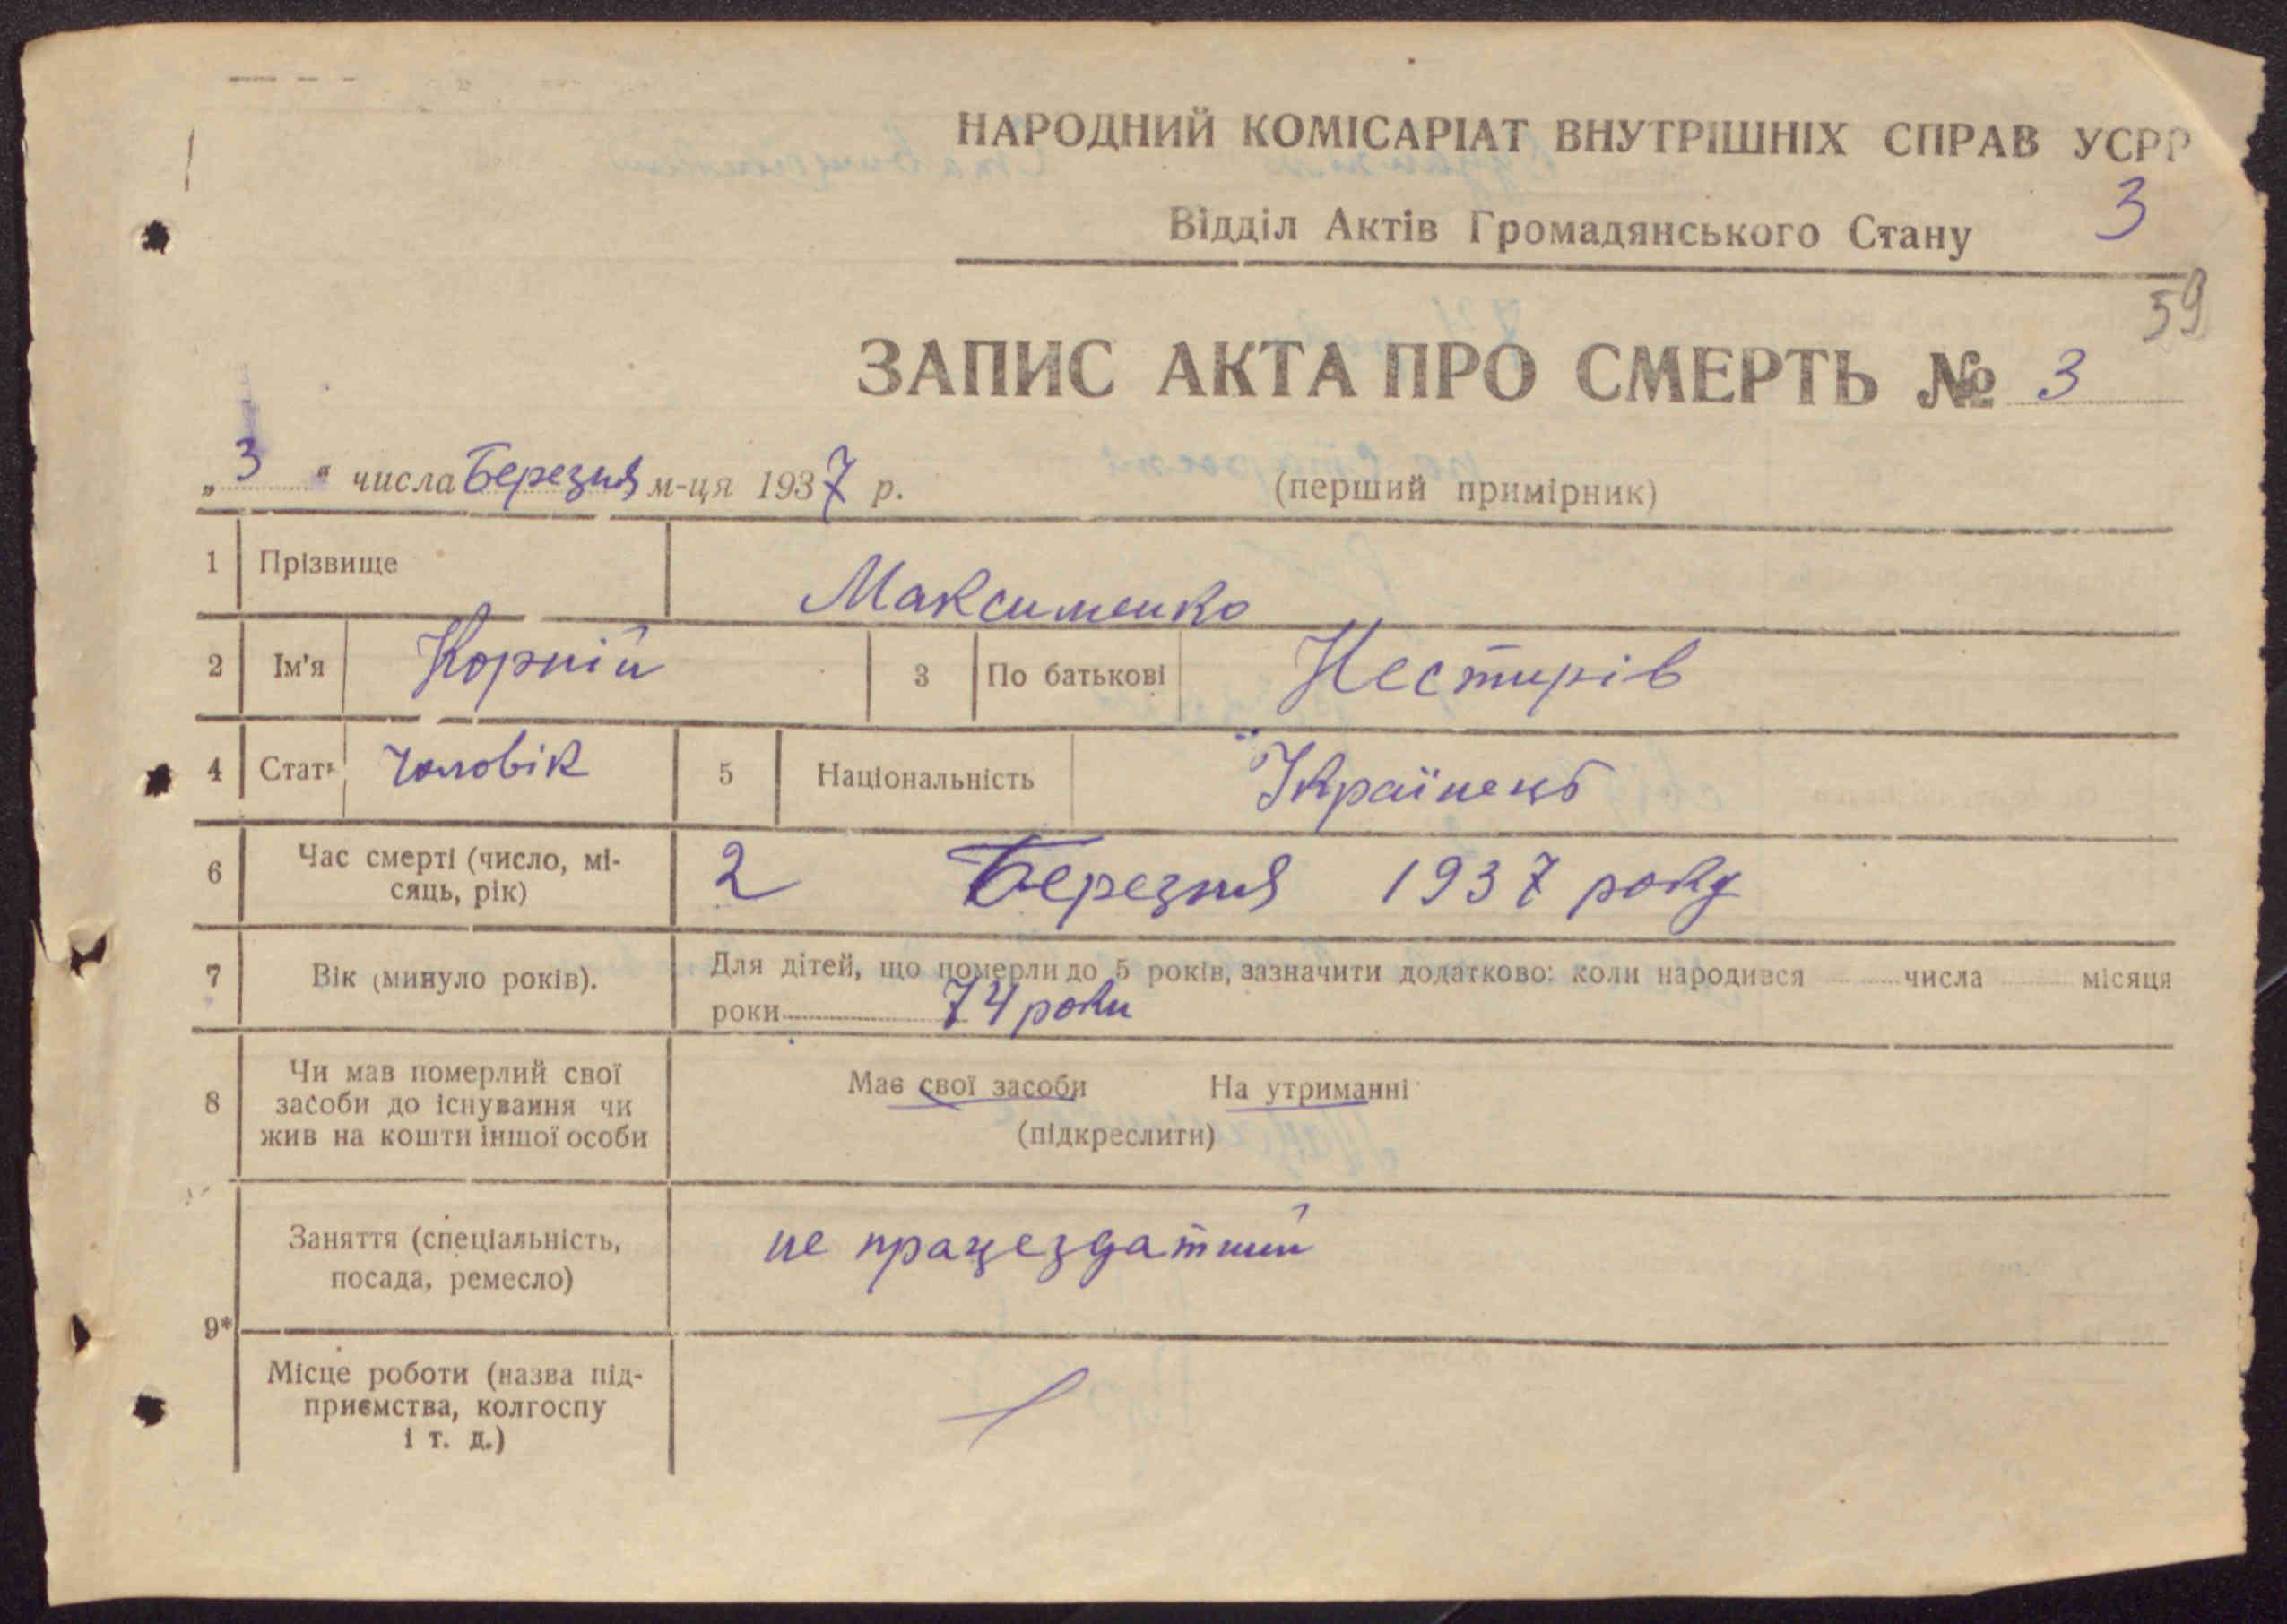 НАРОДНИЙ КОМІСАРІАТ ВНУТРІШНІХ СПРАВ УСРР
Відділ Актів Громадянського Стану 3
59
ЗАПИС АКТА ПРО СМЕРТЬ № 3
„3“ числа Березня м-ця 1937 р.
(перший примірник)
1 Прізвище Максименко
2 Ім'я Корній 3 По батькові Нестирів
4 Стать чоловік 5 Національність Українець
6 Час смерті (число, мі-
сяць, рік) 2 Березня 1937 року
7 Вік (минуло років). Для дітей, що померли до 5 років, зазначити додатково: коли народився числа місяця
роки 74 роки
8 Чи мав померлий свої
засоби до існування чи
жив на кошти іншої особи
Має свої засоби На утриманні
(підкреслити)
Заняття (спеціальність,
посада, ремесло) не працездатний
9*
Місце роботи (назва під-
приємства, колгоспу
і т. д.)